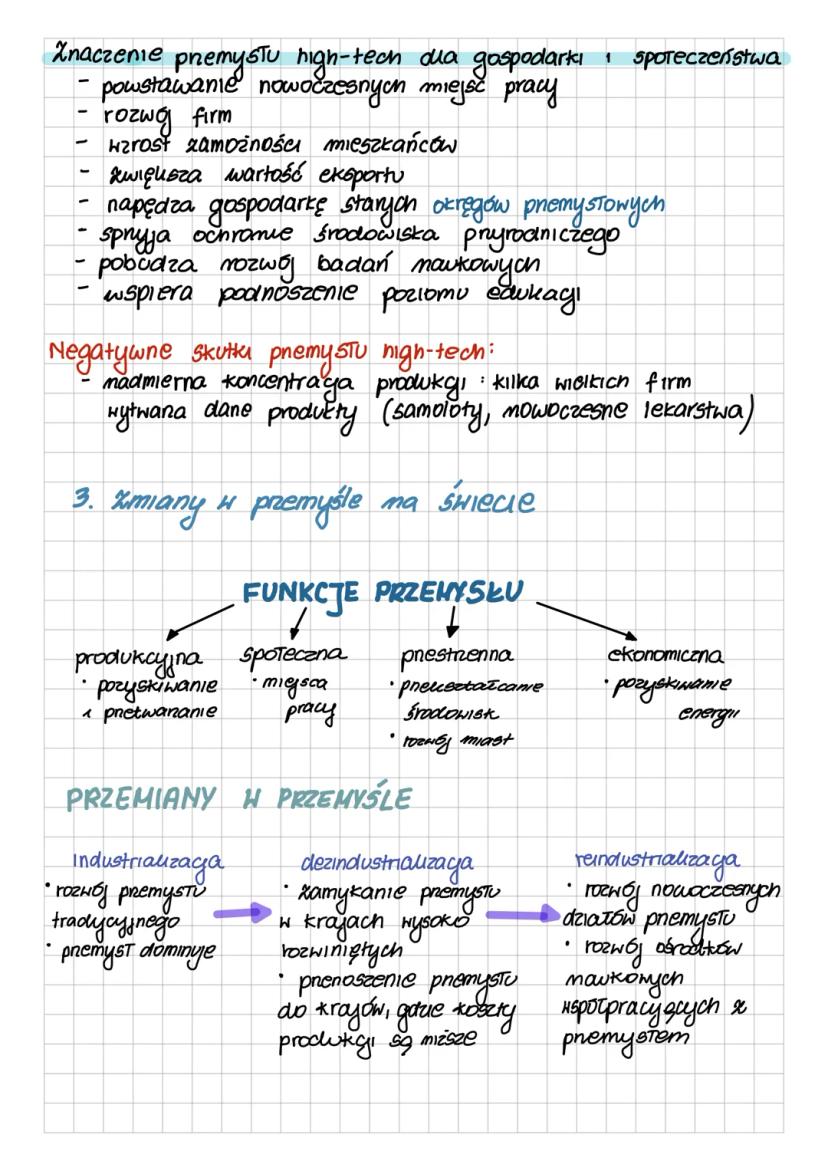 Znaczenie przemysłu high-tech dla gospodarki i społeczeństwa
- powstawanie nowoczesnych miejsc pracy
- rozwój firm
- wzrost zamożności mieszkańców
- zwiększa wartość eksportu
- napędza gospodarkę starych okręgów przemysłowych
- sprzyja ochronie środowiska przyrodniczego
- pobudza rozwój badań naukowych
- wspiera podnoszenie poziomu edukacji
Negatywne skutki przemysłu high-tech:
- nadmierna koncentracja produkcji : kilka wielkich firm
wytwarza dane produkty (samoloty, nowoczesne lekarstwa)
3. Zmiany w przemyśle na świecie
FUNKCJE PRZEMYSŁU
produkcyjna
• pozyskiwanie
i przetwarzanie
społeczna
• miejsca
pracy
przestrzenna
• przekształcanie
środowisk
• rozwój miast
ekonomiczna
• pozyskiwanie
energii
PRZEMIANY W PRZEMYŚLE
industrializacja
• rozwój przemysłu
tradycyjnego
• przemysł dominuje
dezindustrializacja
• zamykanie przemysłu
w krajach wysoko
rozwiniętych
• przenoszenie przemysłu
do krajów, gdzie koszty
produkcji są niższe
reindustrializacja
• rozwój nowoczesnych
działów przemysłu
• rozwój ośrodków
naukowych
współpracujących z
przemysłem